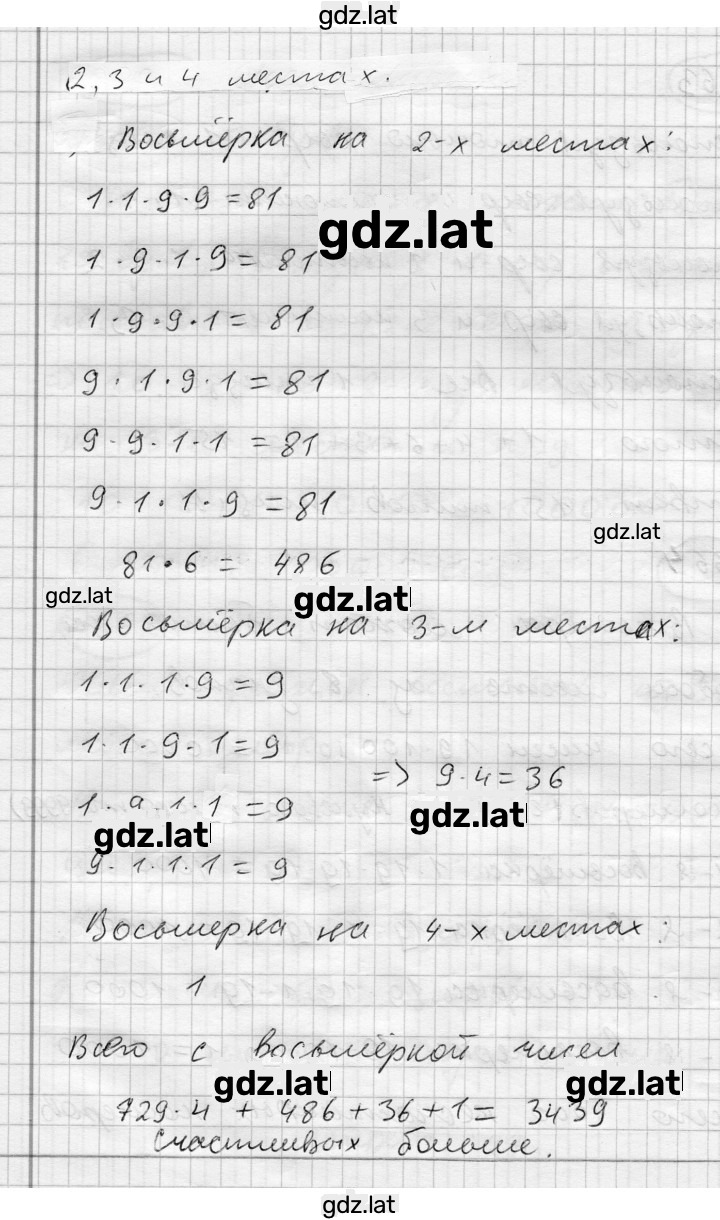 gdz.lat
2, 3 и 4 местах.
Восьмёрка на 2-х местах:
1·1·9·9 = 81
gdz.lat
1·9·1·9 = 81
1·9·9·1 = 81
9·1·9·1 = 81
9·9·1·1 = 81
9·1·1·9 = 81
gdz.lat
81·6 = 486
gdz.lat gdz.lat
Восьмёрка на 3-м местах:
1·1·1·9 = 9
1·1·9·1 = 9
=> 9·4 = 36
1·9·1·1 = 9
gdz.lat
gdz.lat
9·1·1·1 = 9
Восьмерка на 4-х местах:
1
Всего с восьмёркой чисел
gdz.lat gdz.lat
729·4 + 486 + 36 + 1 = 3439
Счастливых больше.
gdz.lat